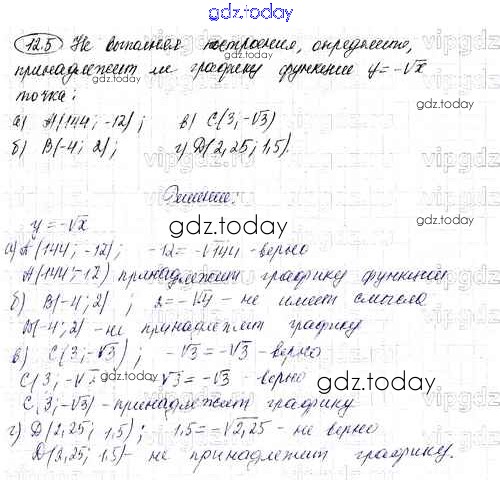 gdz.today
12.5 Не выполняя построения, определите,
принадлежит ли графику функции y = -√x
точка:
gdz.today
а) A(144; -12); в) C(3; -√3)
б) B(-4; 2); г) D(2,25; 1,5).
Решение:
y = -√x
gdz.today
а) A(144; -12); -12 = -√144 - верно
A(144; -12) принадлежит графику функции
б) B(-4; 2); 2 = -√4 - не имеет смысла
B(-4; 2) - не принадлежит графику
в) C(3; -√3); -√3 = -√3 - верно
gdz.today
C(3; -√3 √3 = -√3 - верно
gdz.today
C(3; -√3) - принадлежит графику
г) D(2,25; 1,5); 1,5 = -√2,25 - не верно
D(2,25; 1,5) - не принадлежит графику.